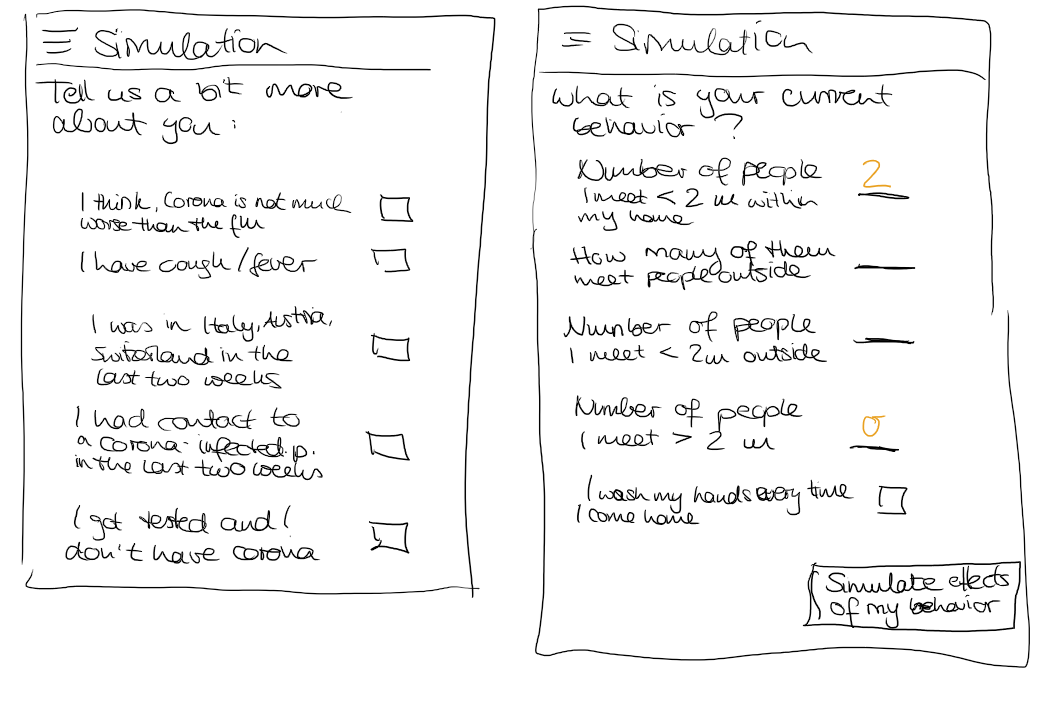 Simulation
Tell us a bit more
about you:
I think, Corona is not much
worse than the flu
I have cough/fever
I was in Italy, Austria,
Switzerland in the
last two weeks
I had contact to
a corona-infected p.
in the last two weeks
I got tested and I
don't have corona
Simulation
What is your current
behavior?
Number of people 2
I meet < 2 m within
my home
How many of them
meet people outside
Number of people
I meet < 2m outside
Number of people
I meet > 2 m 0
I wash my hands every time
I come home
Simulate effects
of my behavior